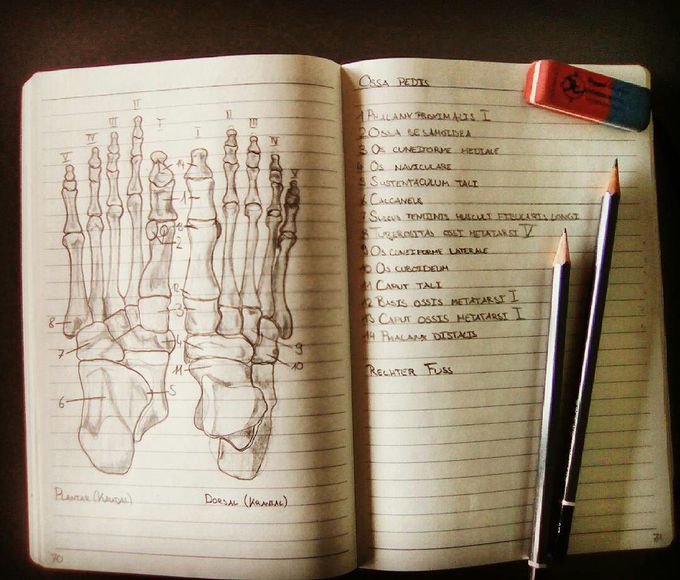 V IV III II I I II III IV V
14
1
13
2
12
3
8
4
7
9
10
11
5
6
PLANTAR (KAUDAL) DORSAL (KRANIAL)
70
OSSA PEDIS
1 PHALANX PROXIMALIS I
2 OSSA SESAMOIDEA
3 OS CUNEIFORME MEDIALE
4 OS NAVICULARE
5 SUSTENTACULUM TALI
6 CALCANEUS
7 SULCUS TENDINIS MUSCULI FIBULARIS LONGI
8 TUBEROSITAS OSSI METATARSI V
9 OS CUNEIFORME LATERALE
10 OS CUBOIDEUM
11 CAPUT TALI
12 BASIS OSSIS METATARSI I
13 CAPUT OSSIS METATARSI I
14 PHALANX DISTALIS
RECHTER FUSS
71